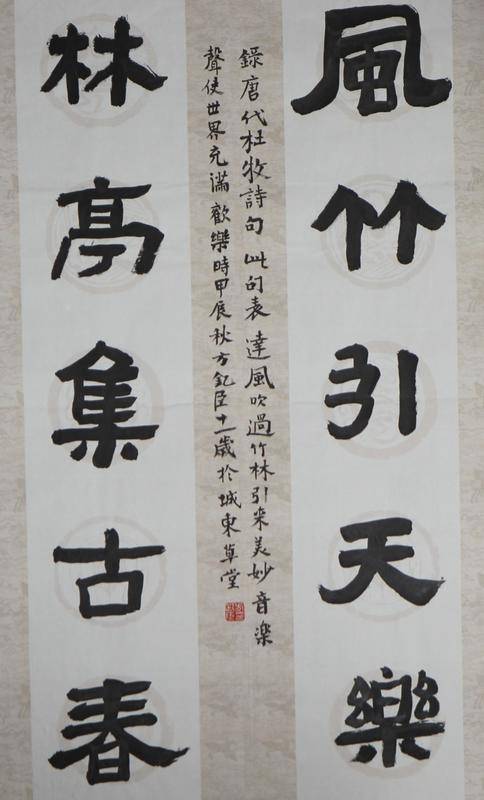 風竹引天樂
林亭集古春
錄唐代杜牧詩句此句表達風吹過竹林引來美妙音楽
聲使世界充滿歡樂時甲辰秋方釔臣十一歲於城東草堂